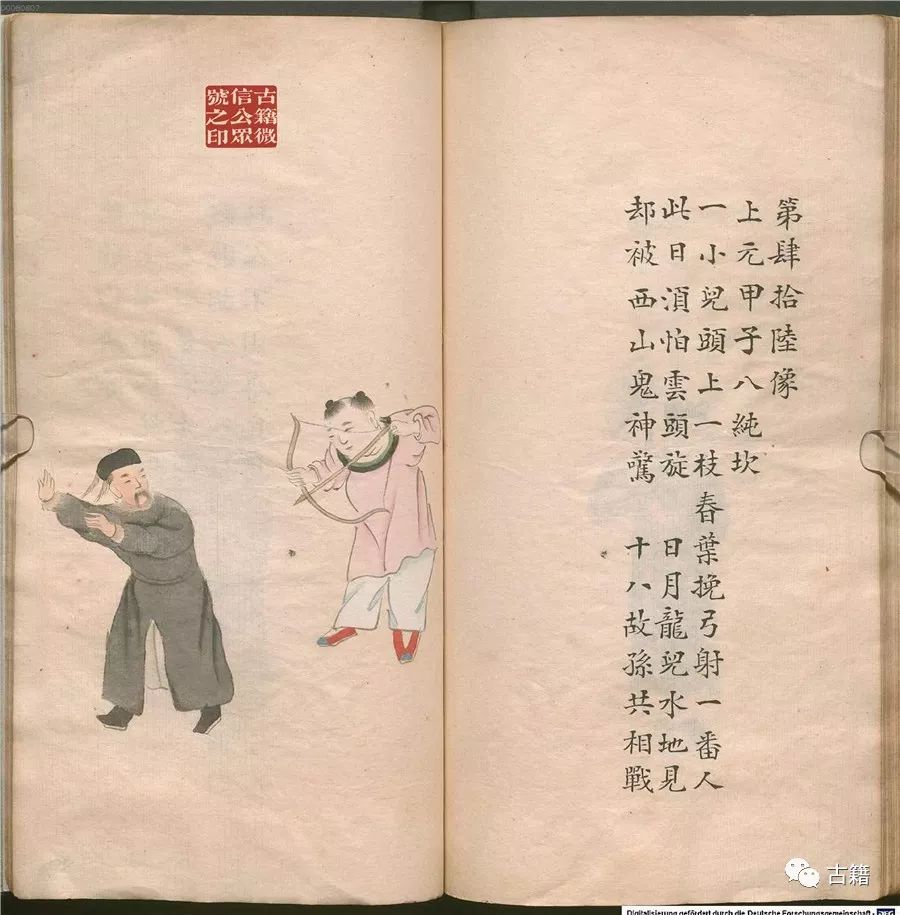 00060807
古籍微
信公眾
號之印
第肆拾陸像
上元甲子八純坎
一小兒頭上一枝春葉挽弓射一番人
此日湏怕雲頭旋 日月龍兒水地見
却被西山鬼神驚 十八故孫共相戰
古籍
Digitalisierung gefördert durch die Deutsche Forschungsgemeinschaft - DFG